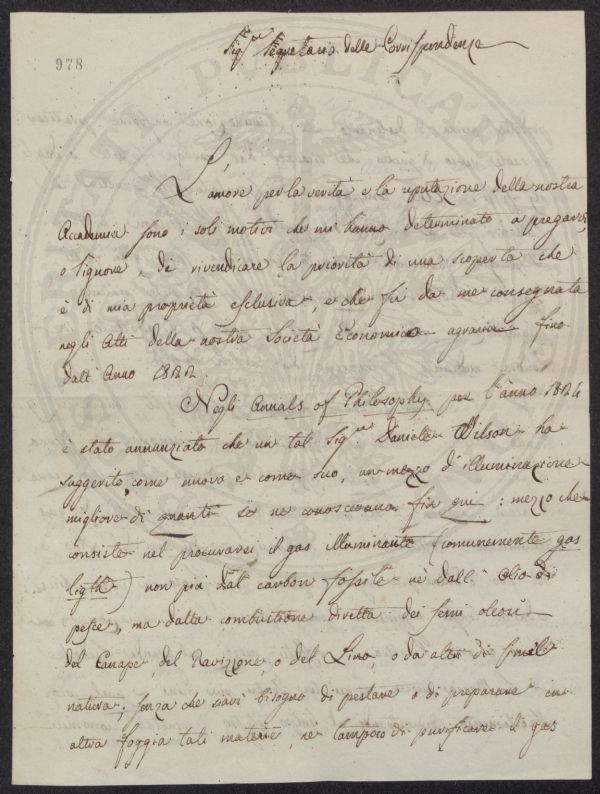 978
Sig.re Segretario delle Corrispondenze
L'amore per la verità e la reputazione della nostra
Accademia sono i soli motivi che mi hanno determinato a pregarvi,
o Signore, di rivendicare la priorità di una scoperta che
è di mia proprietà esclusiva, e che fù da me consegnata
negli Atti della nostra Società Economico agraria fino
dall'Anno 1822.
Negli Annals of Philosophy per l'anno 1824
è stato annunziato che un tal Sig.re Daniele Wilson ha
suggerito come nuovo e come suo, un mezzo d'illuminazione
migliore di quanti se ne conoscevano fin qui: mezzo che
consiste nel procurarsi il gas illuminante (comunemente gas
ligth) non più dal carbon fossile nè dall'olio di
pesce, ma dalla combustione diretta dei semi oleosi
del Canape, del Ravizzone, o del Lino, o da altri di simile
natura; senza che siavi bisogno di pestare o di preparare in
altra foggia tali materie, nè tampoco di purificare il gas